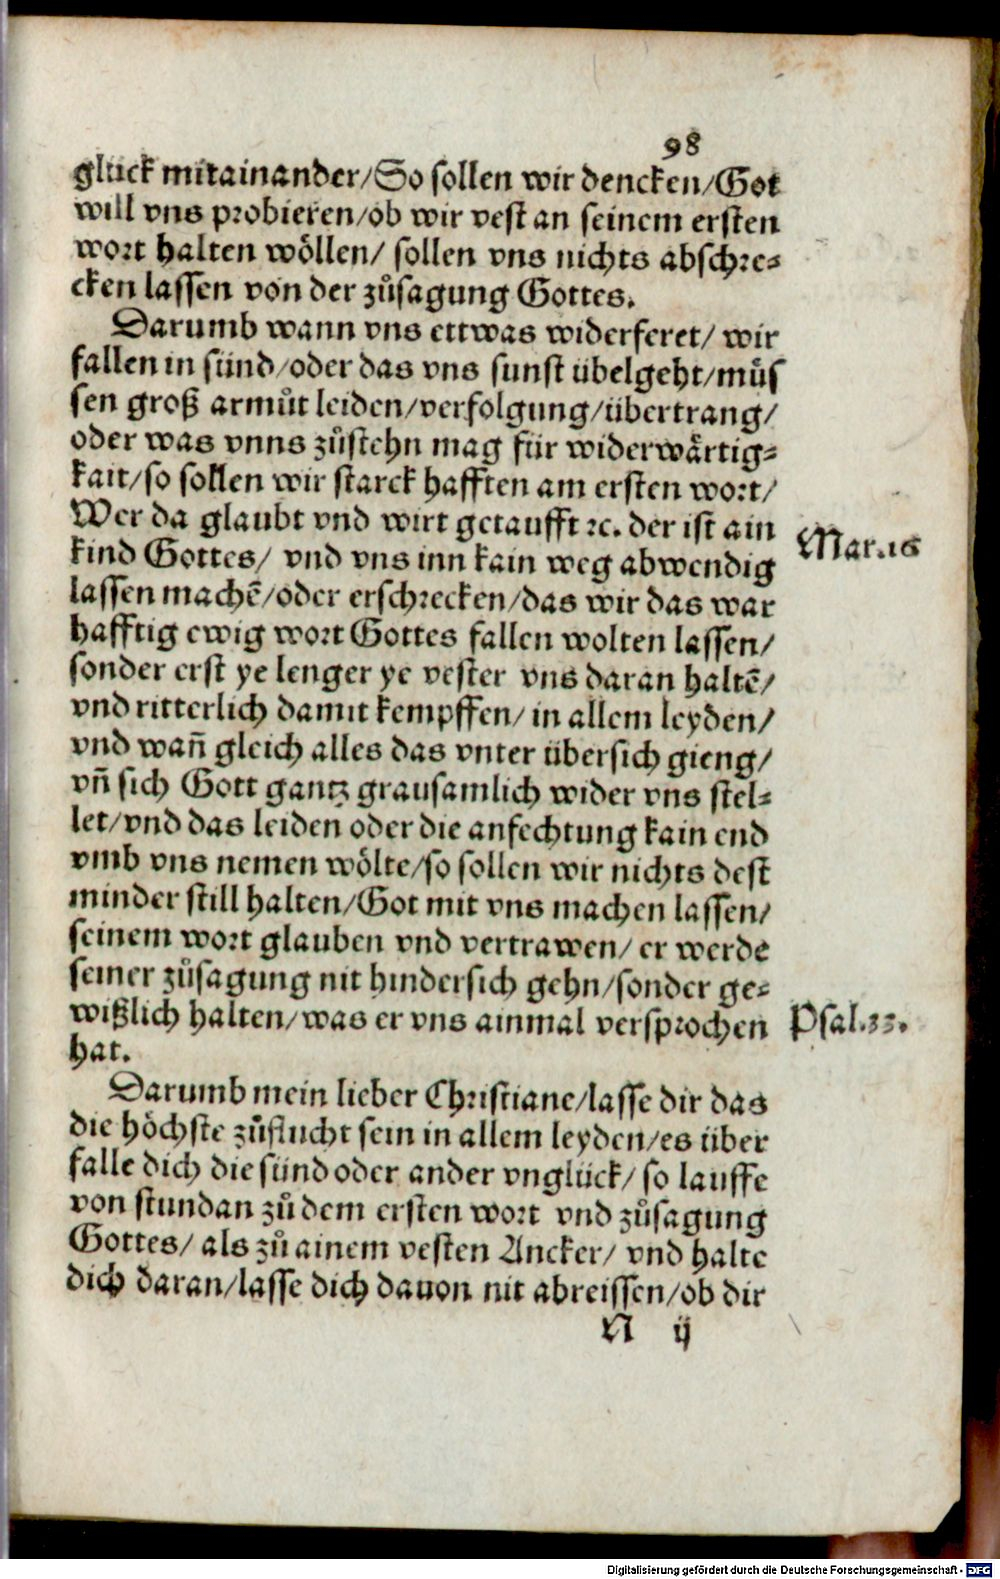 98
glück mitainander/So sollen wir dencken/Got
will vns probieren/ob wir vest an seinem ersten
wort halten wöllen/ sollen vns nichts abschre⸗
cken lassen von der zůsagung Gottes.
Darumb wann vns ettwas widerferet/ wir
fallen in sünd/oder das vns sunst übelgeht/můs
sen groß armůt leiden/verfolgung/übertrang/
oder was vnns zůstehn mag für widerwärtig⸗
kait/so sollen wir starck hafften am ersten wort/
Wer da glaubt vnd wirt getaufft ꝛc. der ist ain
kind Gottes/ vnd vns inn kain weg abwendig
Mar.16
lassen machē/oder erschrecken/das wir das war
hafftig ewig wort Gottes fallen wolten lassen/
sonder erst ye lenger ye vester vns daran haltē/
vnd ritterlich damit kempffen/ in allem leyden/
vnd wañ gleich alles das vnter übersich gieng/
vñ sich Gott gantz grausamlich wider vns stel⸗
let/vnd das leiden oder die anfechtung kain end
vmb vns nemen wölte/so sollen wir nichts dest
minder still halten/Got mit vns machen lassen/
seinem wort glauben vnd vertrawen/ er werde
seiner zůsagung nit hindersich gehn/sonder ge⸗
wißlich halten/was er vns ainmal versprochen
Psal.33.
hat.
Darumb mein lieber Christiane/lasse dir das
die höchste zůflucht sein in allem leyden/es über
falle dich die sünd oder ander vnglück/ so lauffe
von stundan zů dem ersten wort vnd zůsagung
Gottes/ als zů ainem vesten Ancker/ vnd halte
dich daran/lasse dich dauon nit abreissen/ob dir
N ij
Digitalisierung gefördert durch die Deutsche Forschungsgemeinschaft - DFG